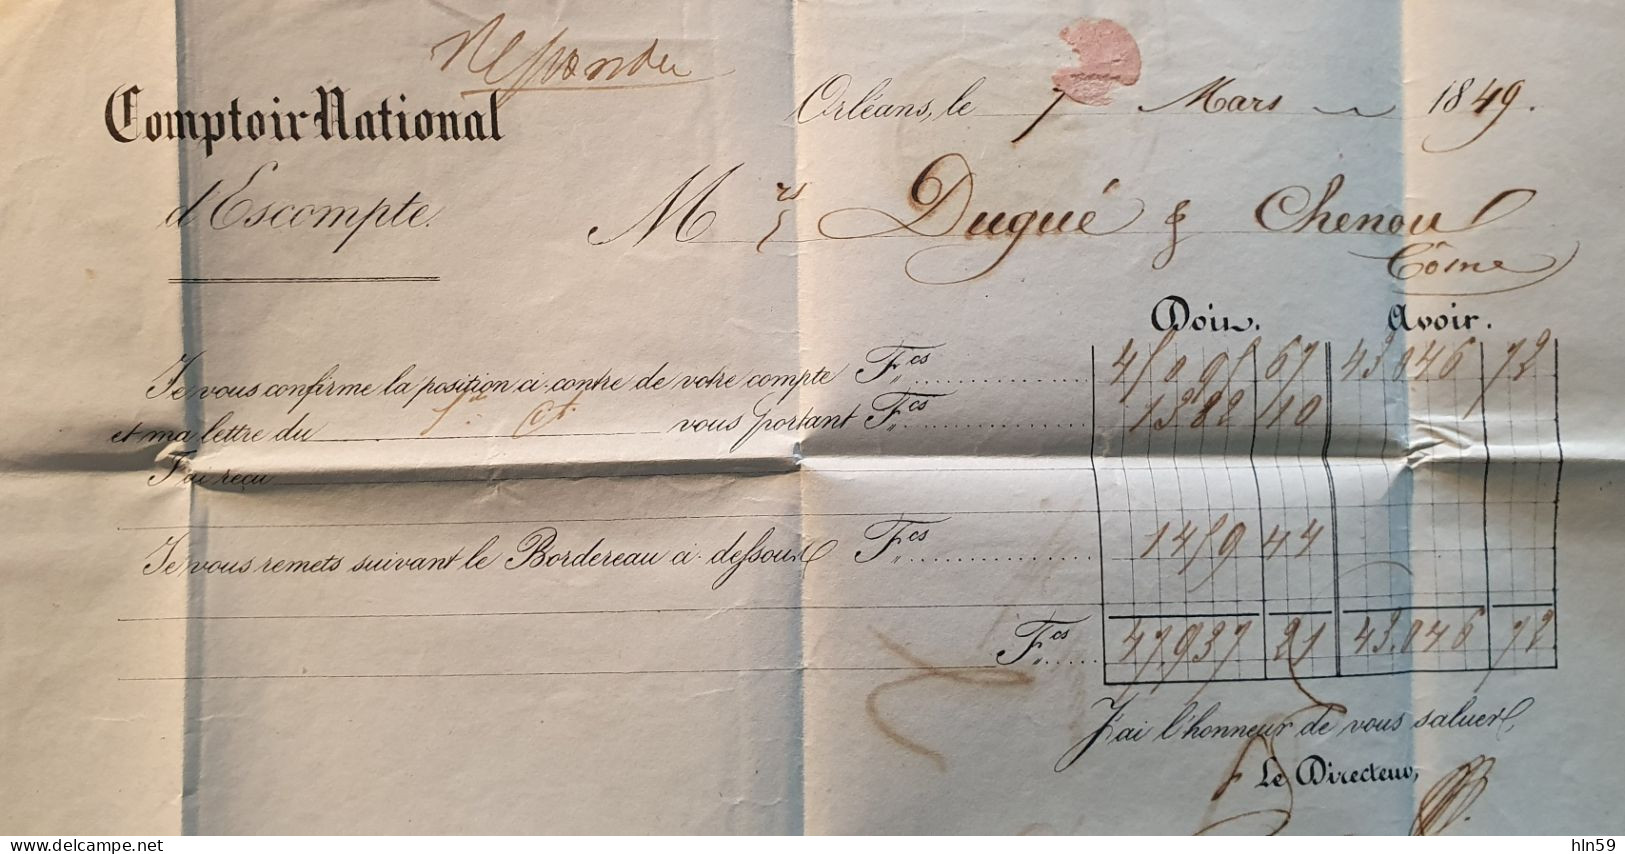 Répondu
Comptoir National
d'Escompte.
Orléans, le 7 Mars 1849.
M rs Dugué & Chenou
Côsne
Doit. Avoir.
Je vous confirme la position ci-contre de votre compte Fcs 45095 67 43.046 72
et ma lettre du 1er Ct. vous portant Fcs 1382 10
J'ai reçu
Je vous remets suivant le Bordereau ci-dessous Fcs 1459 44
Fcs 47.937 21 43.046 72
J'ai l'honneur de vous saluer,
Le Directeur,
delcampe.net
hln59